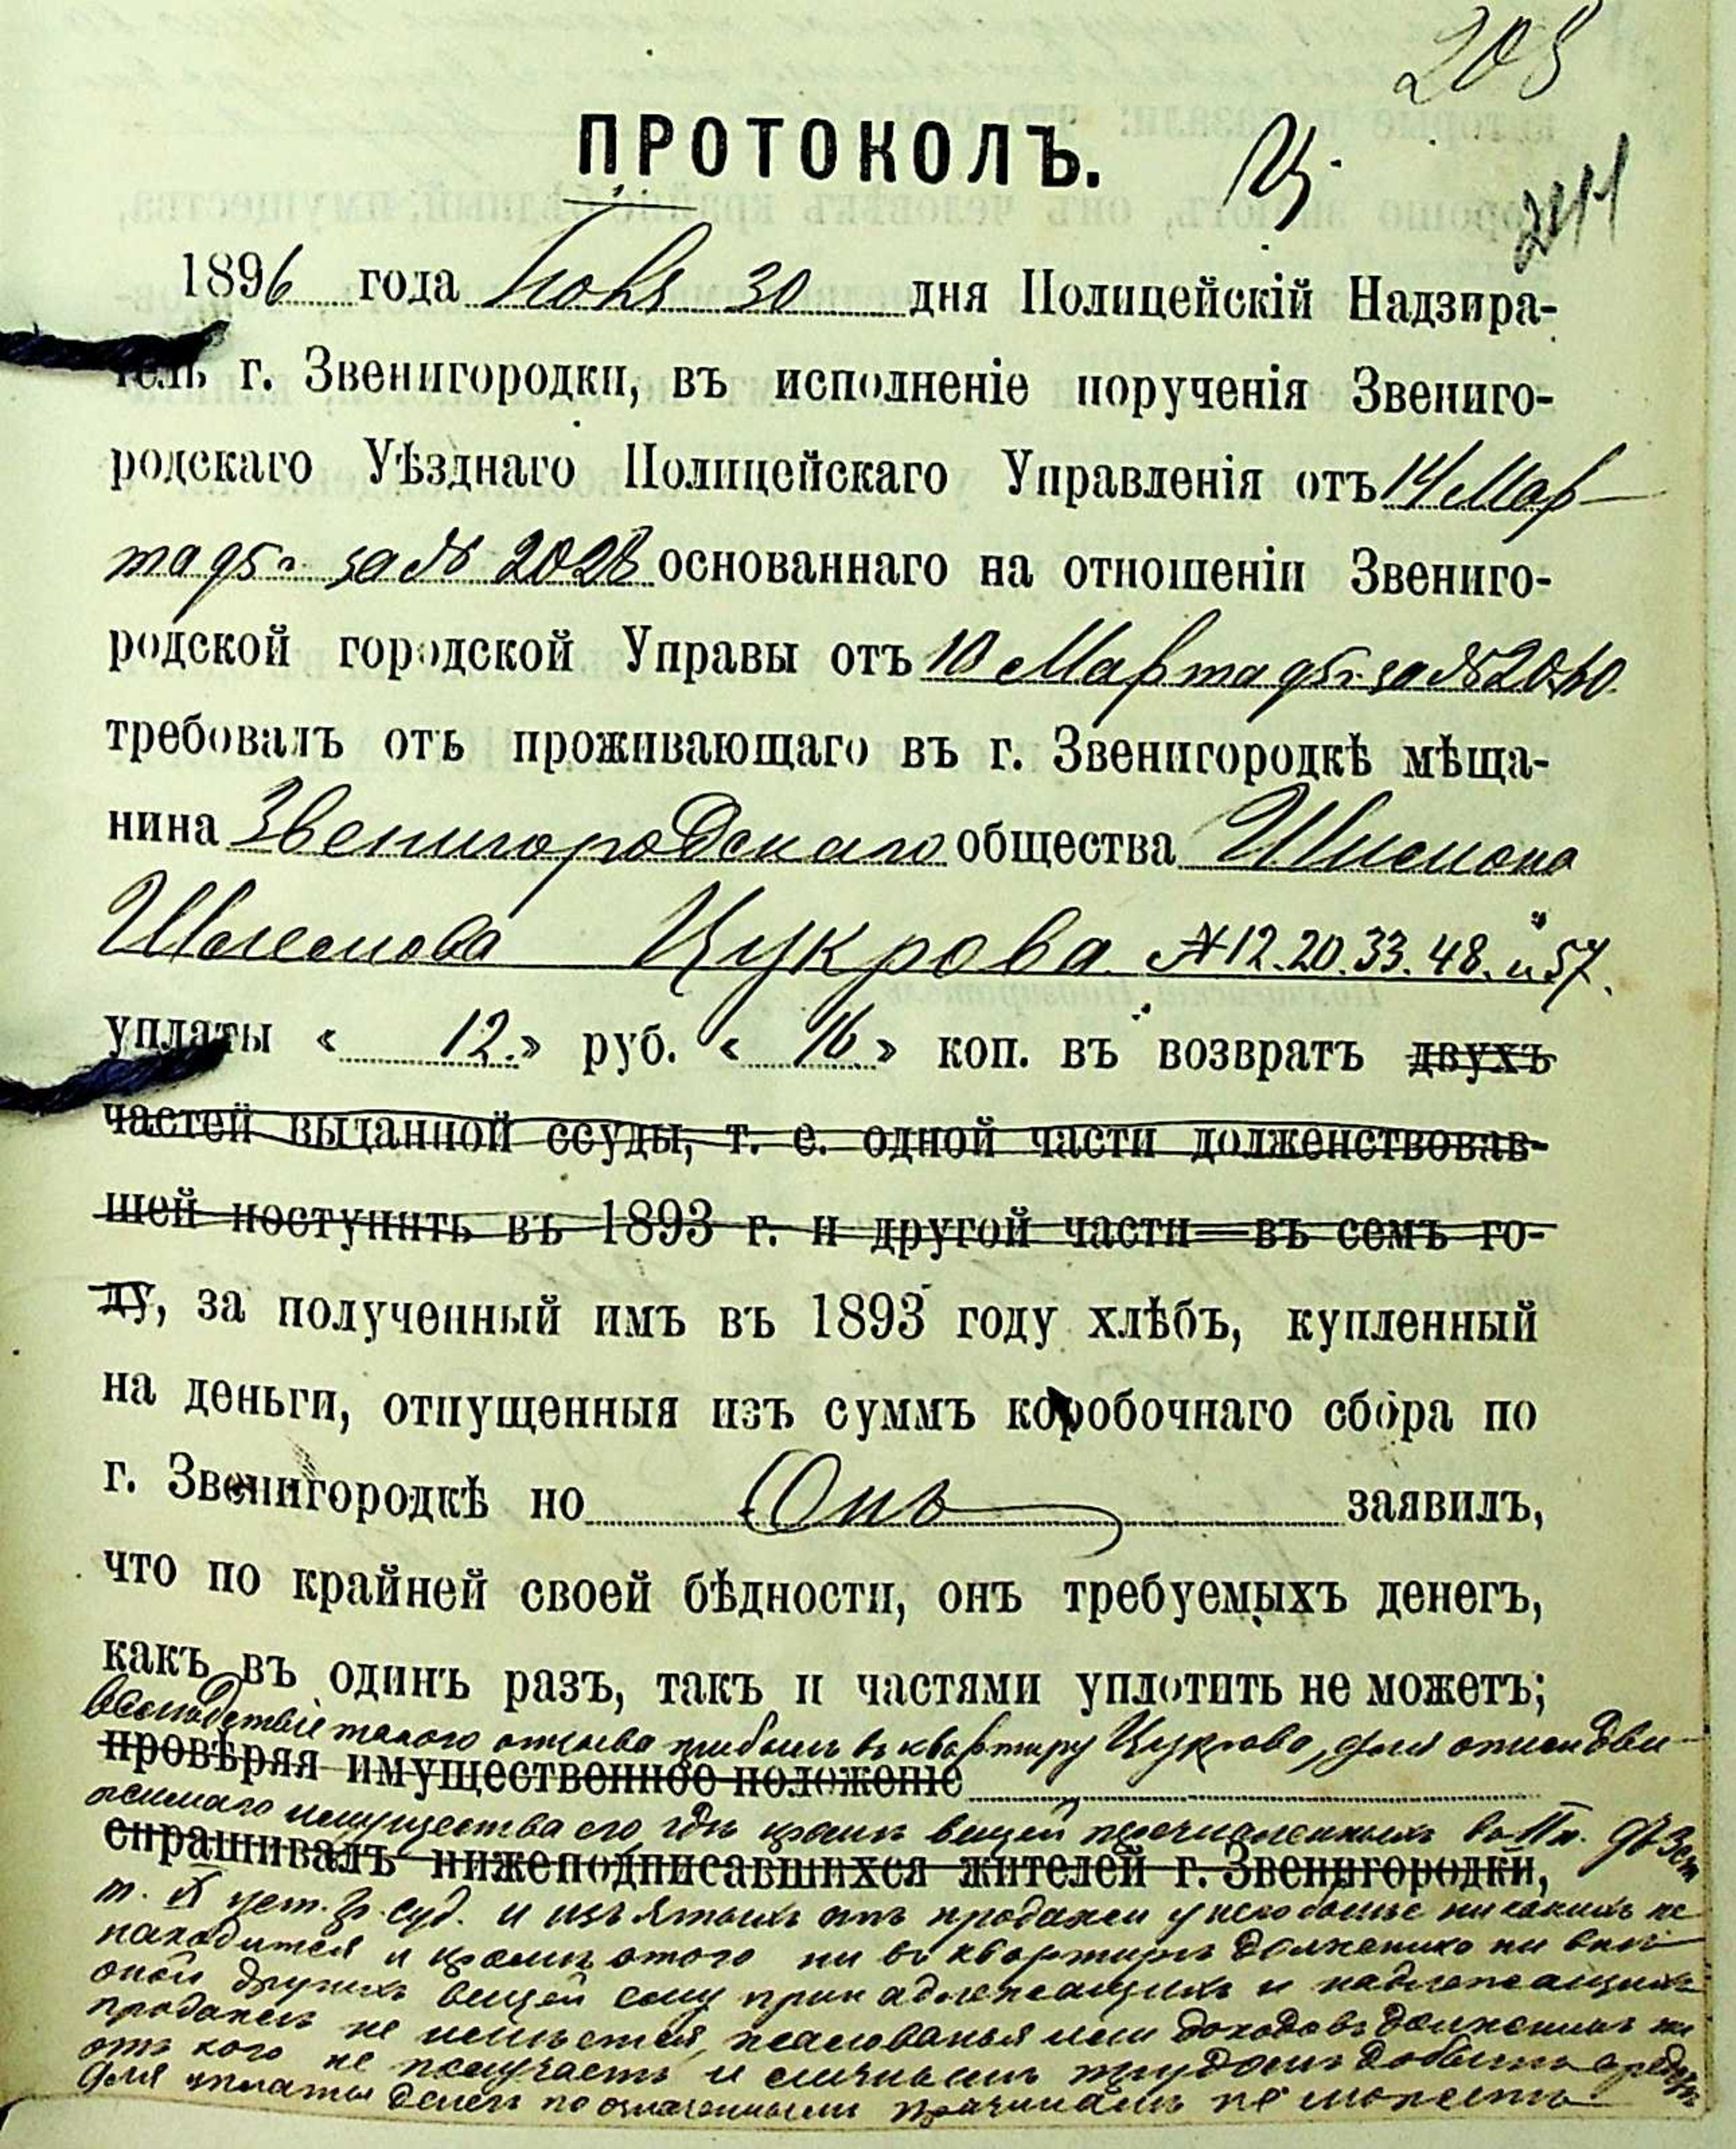 208
ПРОТОКОЛЪ.
Ц.
244
1896 года Іюня 30 дня Полицейскій Надзира-
тель г. Звенигородки, въ исполненіе порученія Звениго-
родскаго Уѣзднаго Полицейскаго Управленія отъ 14 Мар-
та 95 г. за № 2028 основаннаго на отношеніи Звениго-
родской городской Управы отъ 10 Марта 95 г. за №
требовалъ отъ проживающаго въ г. Звенигородкѣ мѣща-
нина Звенигородскаго общества
Цукрова № 12. 20. 33. 48. и 57.
уплаты « 12. » руб. « 16 » коп. въ возвратъ двухъ
частей выданной ссуды, т. е. одной части долженствовав-
шей поступить въ 1893 г. и другой части—въ семъ го-
ду, за полученный имъ въ 1893 году хлѣбъ, купленный
на деньги, отпущенныя изъ суммъ коробочнаго сбора по
г. Звенигородкѣ но Онъ заявилъ,
что по крайней своей бѣдности, онъ требуемыхъ денегъ,
какъ въ одинъ разъ, такъ и частями уплотить не можетъ;
вслѣдствіе такого отзыва прибылъ въ квартиру Цукрова, для описи дви-
провѣряя имущественное положеніе
жимаго имущества его, гдѣ кромѣ вещей перечисленныхъ во II п. 973 ст.
спрашивалъ нижеподписавшихся жителей г. Звенигородки,
т. X уст. гр. суд. и изъятыхъ отъ продажи у него больше никакихъ не
находится и кромѣ этого ни въ квартирѣ должника ни внѣ
оной другихъ вещей ему принадлежащихъ и надлежащихъ
продажѣ не имѣется, жалованья или доходовъ должникъ ни
отъ кого не получаетъ и личнымъ трудомъ добыть средствъ
для уплаты денегъ по означеннымъ причинамъ не можетъ